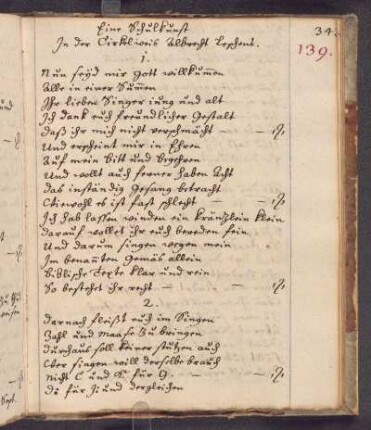 34.
139.
Eine Schulkunst
In der Cirkelweis Albrecht Leschens.
1.
Nun seyd mir Gott willkum̄en
Alle in einer Sum̄en
Ihr lieben Singer iung und alt
Ich dank euch freundlicher Gestalt
Daß ihr mich nicht verschmächt
Und erscheint mir in Ehren
Auf mein bitt und begehren
Und wollt auch ferner haben Acht
das inständig Gesang betracht
Wiewohl es ist fast schlecht
Ich hab lassen winden ein kränzlein klein
darauf wollet ihr euch bereden fein
Und darum singen wegen mein
Im benanten Gemäs allein
biblische Texte klar und rein
So bestehet ihr recht
2.
darnach fleißt euch im Singen
Zahl und Maase Zu bringen
durchaus soll keiner stutzen auch
Aber singen will derselbe brauch
Nicht C und K für G.
di für Ji und dergleichen